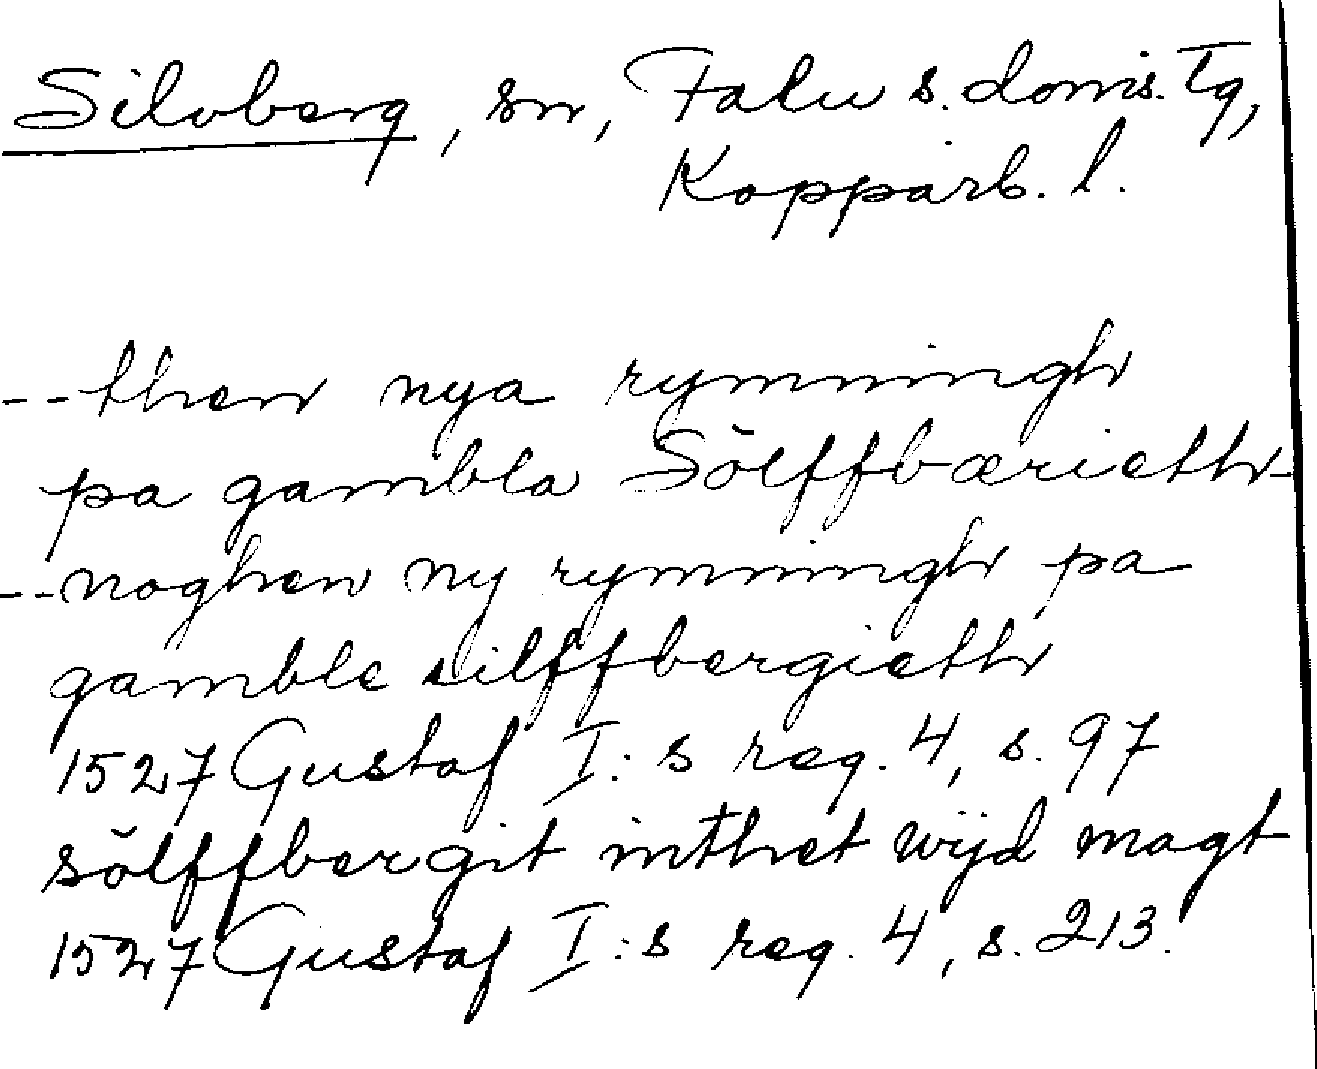 Silvberg, sn, Falu s. doms. Tg,
Kopparb. l.
--then nya rymningh
pa gambla Sölffbærieth-
--noghen ny rymningh pa
gamble silffbergieth
1527 Gustaf I:s reg. 4, s. 97
sölffbergit inthet wijd magt
1527 Gustaf I:s reg. 4, s. 213.